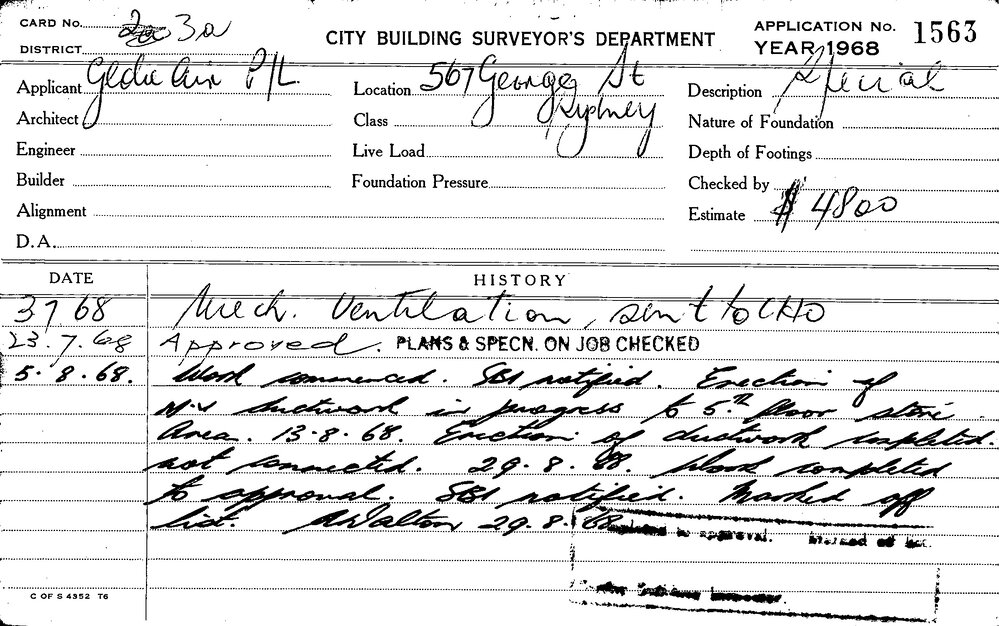 CARD No. 3a
DISTRICT
CITY BUILDING SURVEYOR'S DEPARTMENT
APPLICATION No. 1563
YEAR 1968
Applicant Globe Air P/L
Location 567 George St
Sydney
Description Special
Architect
Class
Nature of Foundation
Engineer
Live Load
Depth of Footings
Builder
Foundation Pressure
Checked by
Alignment
Estimate $ 4800
D.A.
DATE HISTORY
3 7 68 Mech. Ventilation, sent to CHO
23.7.68 Approved. PLANS & SPECN. ON JOB CHECKED
5.8.68. Work commenced. SBI notified. Erection of
M.V ductwork in progress to 5th floor store
Area. 13.8.68. Erection of ductwork completed.
not connected. 29.8.68. Work completed
to approval. SBI notified. Marked off
list. A Walton 29.8.68
Completed to approval. Marked off list.
C OF S 4352 T6